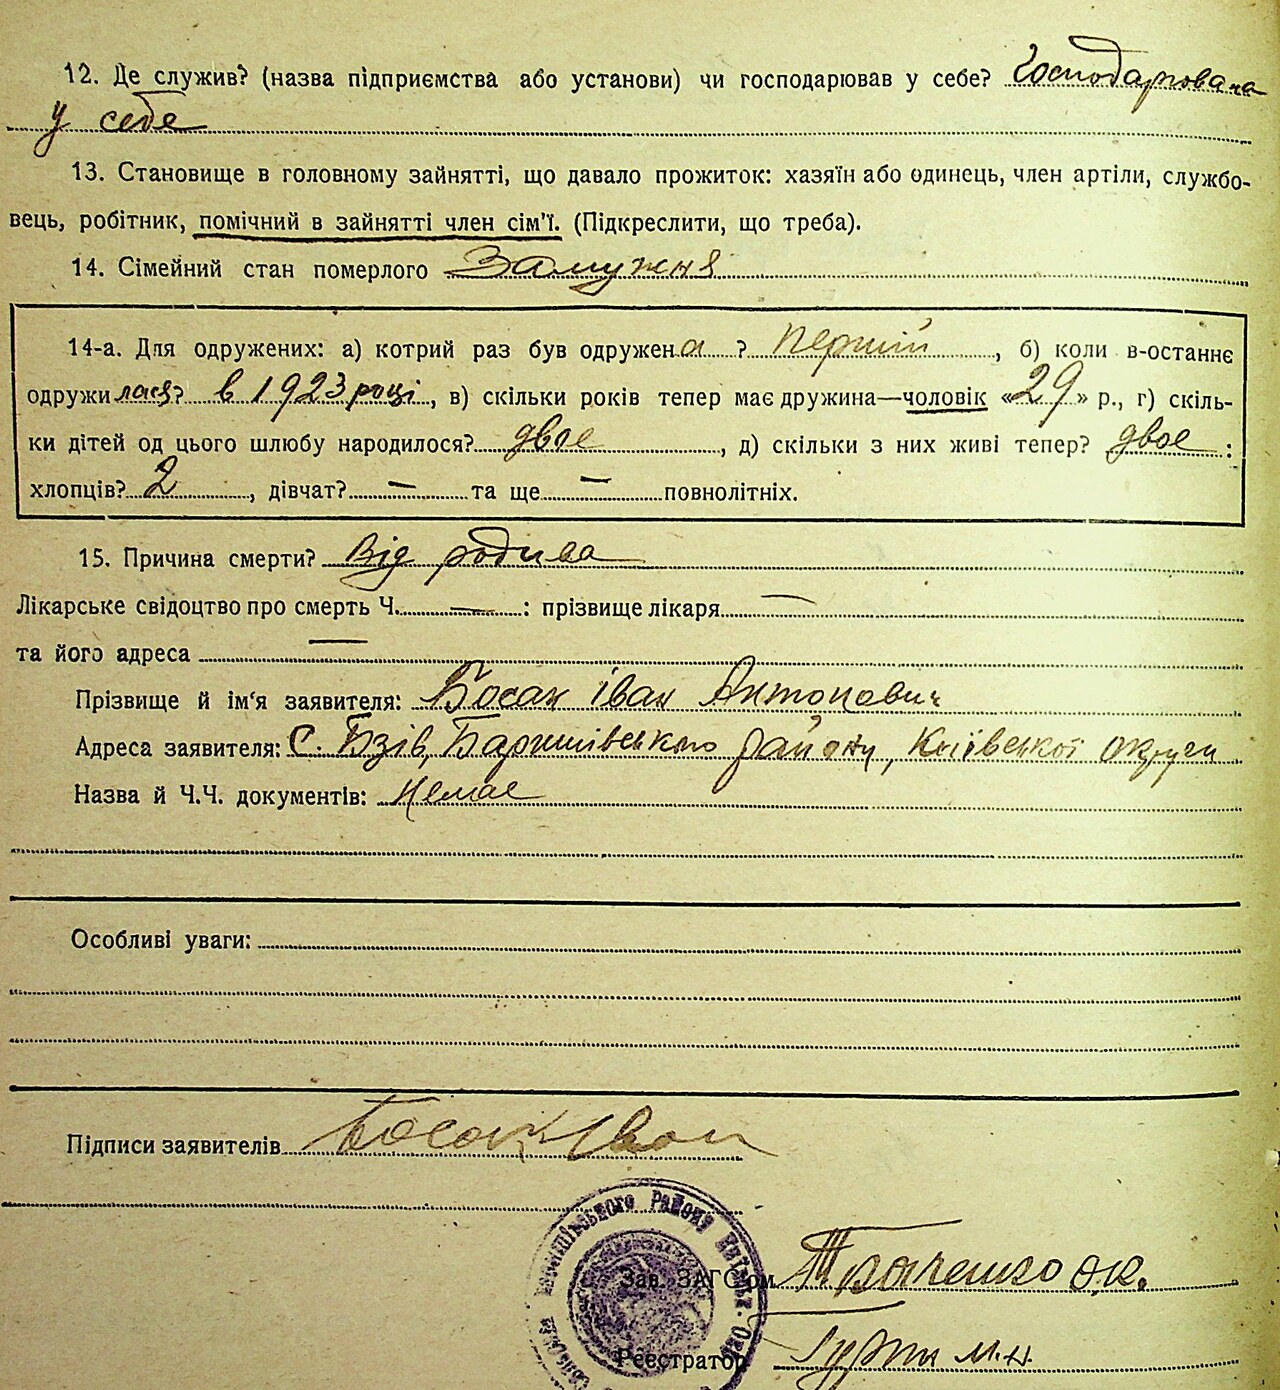 12. Де служив? (назва підприємства або установи) чи господарював у себе? Господарювала
у себе
13. Становище в головному зайнятті, що давало прожиток: хазяїн або одинець, член артіли, службо-
вець, робітник, помічний в зайнятті член сім'ї. (Підкреслити, що треба).
14. Сімейний стан померлого Замужня
14-а. Для одружених: а) котрий раз був одружена ? перший, б) коли в-останнє
одружилася? в 1923 році, в) скільки років тепер має дружина—чоловік «29» р., г) скіль-
ки дітей од цього шлюбу народилося? двоє, д) скільки з них живі тепер? двоє :
хлопців? 2, дівчат? — та ще — повнолітніх.
15. Причина смерти? Від родива
Лікарське свідоцтво про смерть Ч. — : прізвище лікаря —
та його адреса —
Прізвище й ім'я заявителя: Босак Іван Антонович
Адреса заявителя: С. Бзів, Баришівського району, Київської округи
Назва й Ч.Ч. документів: Немає
Особливі уваги:
Підписи заявителів Босак Іван
Району
Зав. ЗАГС'ом Ткаченко
Реєстратор М.Н.